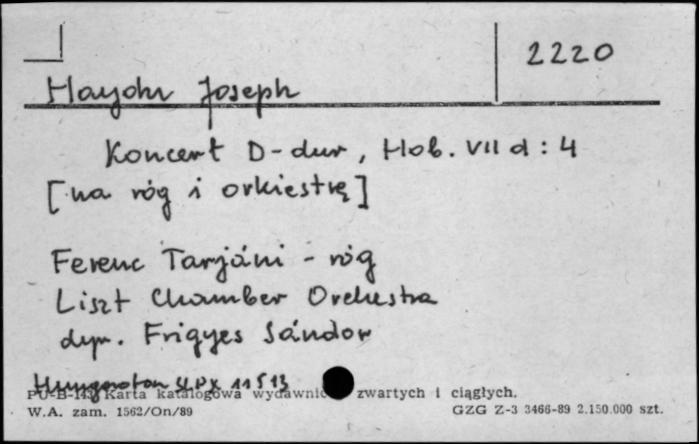 2220
Haydn Joseph
Koncert D-dur, Hob. VII d: 4
[na róg i orkiestrę]
Ferenc Tarjáni - róg
Liszt Chamber Orchestra
dyr. Frigyes Sándor
Hungaroton SLPX 11513
PU-B-143 Karta katalogowa wydawnic zwartych i ciągłych.
W.A. zam. 1562/On/89 GZG Z-3 3466-89 2.150.000 szt.